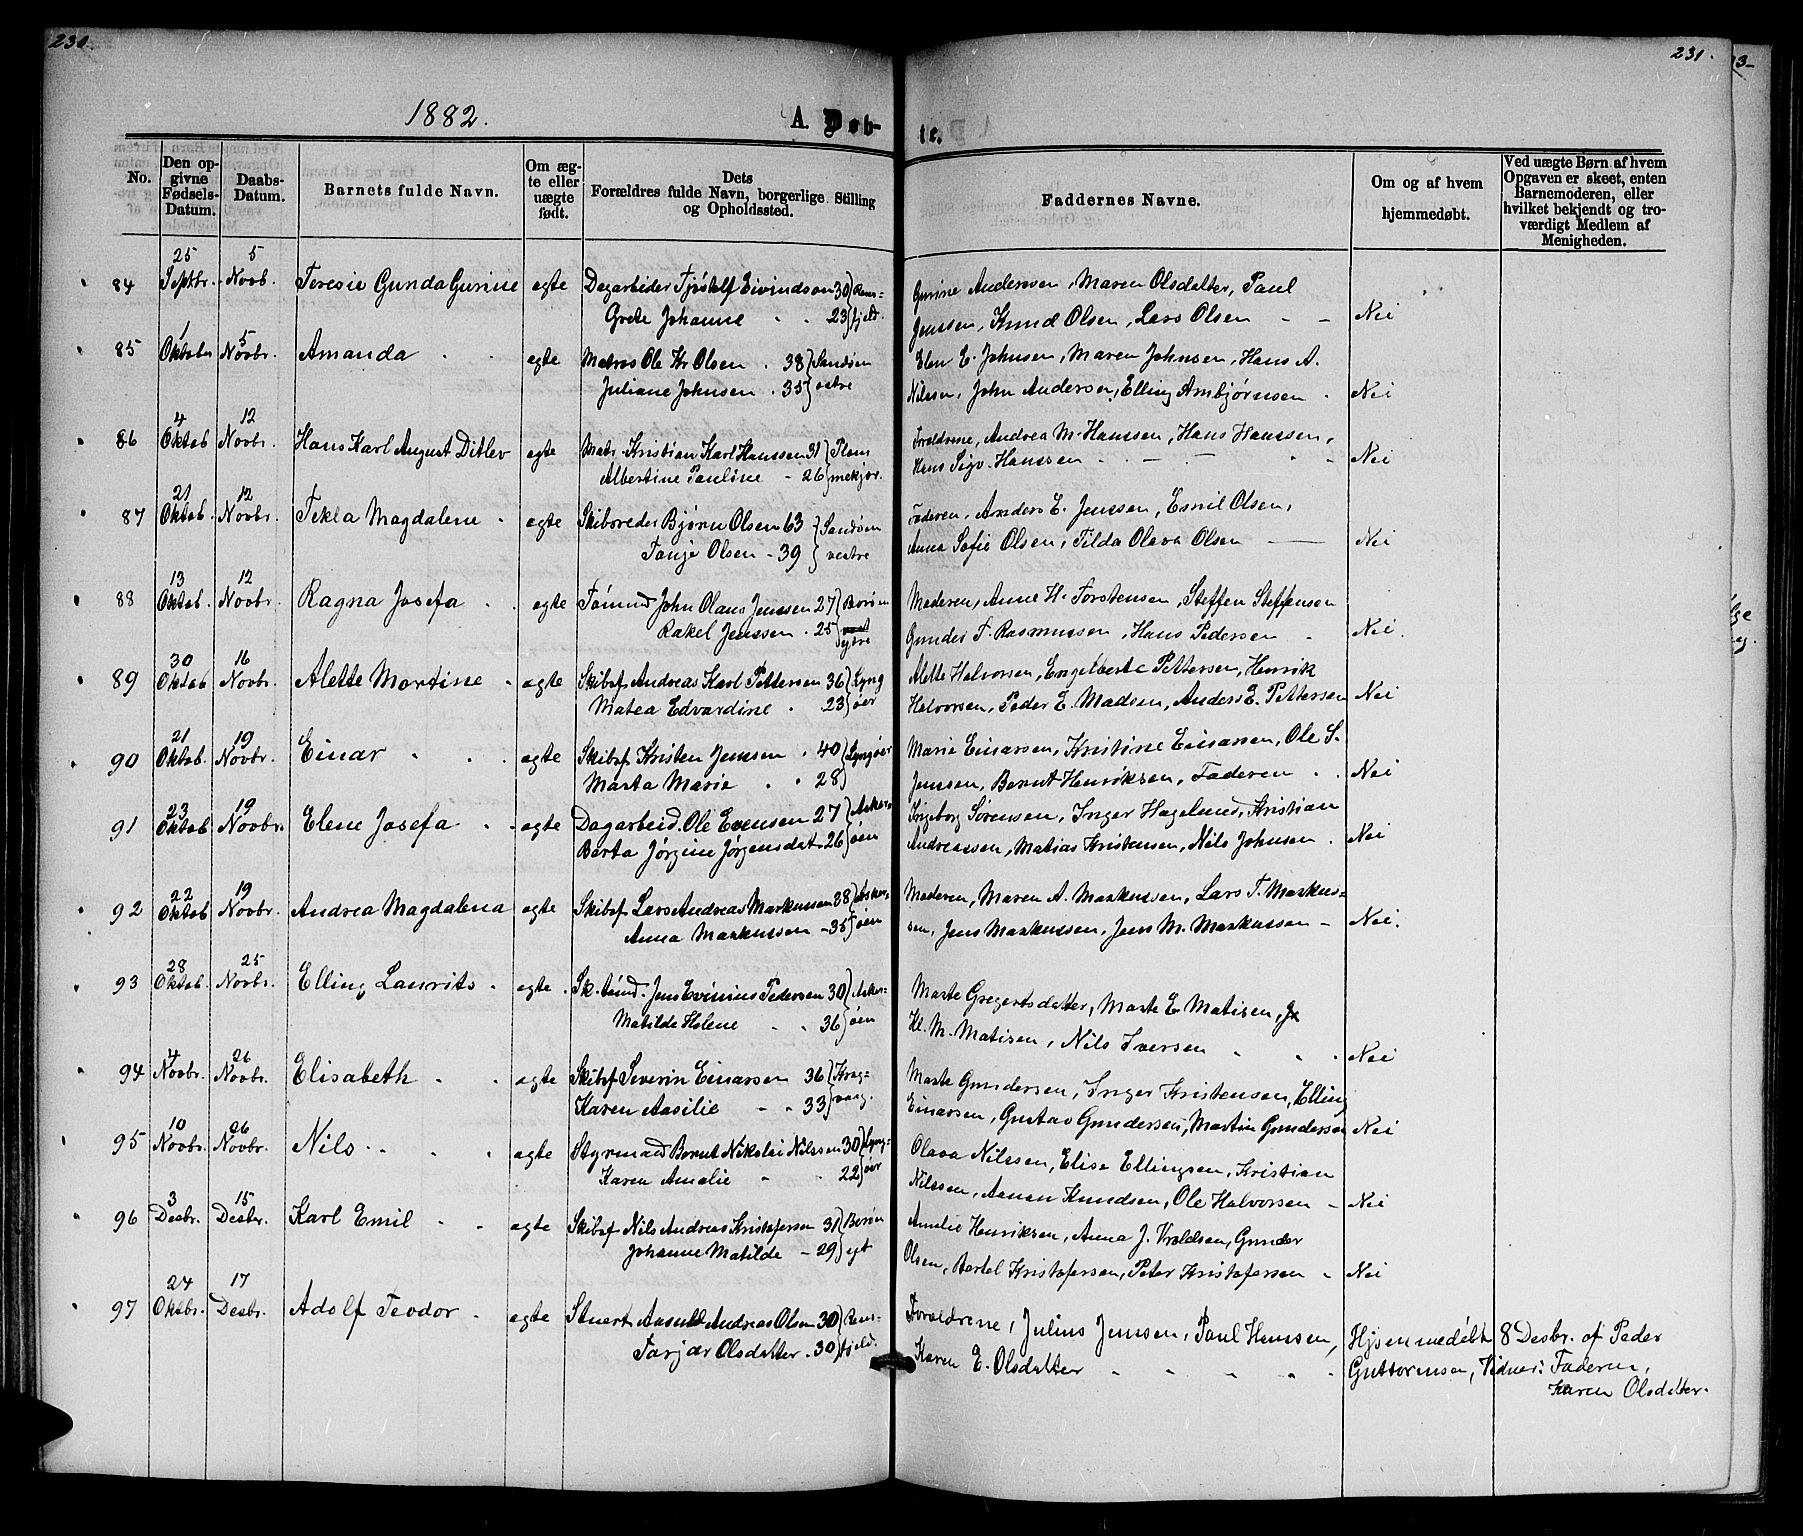 230.
231.
1882.
A. Døb-
te.
No.
Den opgivne Fødsels-Datum.
Daabs-Datum.
Barnets fulde Navn.
Om ægte eller uægte født.
Dets Forældres fulde Navn, borgerlige Stilling og Opholdssted.
Faddernes Navne.
Om og af hvem hjemmedøbt.
Ved uægte Børn af hvem Opgaven er skeet, enten Barnemoderen, eller hvilket bekjendt og troværdigt Medlem af Menigheden.
25 5
84 Septbr. Novb. Teresie Gunda Gurine egte Dagarbeider Tjøstolf Eivindson 30 Rams- Gurine Andersen, Maren Olsdatter, Paul
Grete Johanne 23 fjeld. Jenssen, Knud Olsen, Lars Olsen Nei
1 5
85 Oktober Novbr. Amanda egte Matros Ole Kr. Olsen 38 Sandøen Elen E. Johnsen, Maren Johnsen, Hans A.
Juliane Johnsen 35 vestre Nilssen, John Andersen, Elling Ambjørnsen Nei
4 12
86 Oktob. Novbr. Hans Karl August Ditlev egte Matr. Kristian Karl Hanssen 31 Forældrene, Andrea M. Hanssen, Hans Hanssen,
Albertine Pauline 26 Hans Sigv. Hanssen Nei
21 12
87 Oktob. Novbr. Tekla Magdalene egte Skibsreder Bjørn Olsen 63 Sandøen Faderen, Anders E. Jenssen, Emil Olsen,
Tanje Olsen 39 vestre Anna Sofie Olsen, Tilda Olava Olsen Nei
13 12
88 Oktob. Novbr. Ragna Josefa egte Tømmd John Olaus Jenssen 27 Borøen Moderen, Anne H. Torstensen, Steffen Steffensen
Rakel Jenssen 25 ytre Gunder T. Rasmussen, Hans Pedersen Nei.
30 16
89 Oktob Novbr. Alette Martine egte Skibsf Andreas Karl Pettersen 36 Lyng Alette Halvorsen, Engelberte Pettersen, Henrik
Matea Edvardine 23 øer Halvorsen, Peder E. Madsen, Anders E. Pettersen Nei
21 19
90 Oktob. Novbr. Einar egte Skibsf Kristen Jenssen 40 Lyngøer Marie Einarsen, Kristine Einarsen, Ole S.
Marta Marie 28 Jenssen, Bernt Henriksen, Faderen Nei
23 19
91 Oktob Novbr. Elene Josefa egte Dagarbeid. Ole Evensen 27 Asker- Ingeborg Sørensen, Inger Hagelund, Kristian
Berta Jørgine Jørgensdat. 26 øen Andreassen, Matias Kristensen, Nils Johnsen Nei
22 19
92 Oktob Novbr. Andrea Magdalena egte Skibsf Lars Andreas Markussen 38 Asker- Moderen, Maren A. Markussen, Lars T. Markus-
Anna Markussen 35 øen sen, Jens Markussen, Jens M. Markussen Nei.
28 25
93 Oktob. Novbr. Elling Laurits egte Sk. tømd. Jens Evinius Pedersen 30 Asker- Marte Gregertsdatter, Marte E. Matisen,
Matilde Helene 36 øen Kl. M. Matisen, Nils Iversen Nei
4 26
94 Novbr. Novbr. Elisabeth egte Skibsf Severin Einarsen 36 Krag- Marte Gundersen, Inger Kristensen, Elling
Karen Aasilie 33 vaag. Einarsen, Gustav Gundersen, Martin Gundersen Nei
10 26
95 Novbr. Novbr. Nils egte Styrmand Bernt Nikolai Nilssen 30 Lyng- Olava Nilssen, Elise Ellingsen, Kristian
Karen Amalie 22 øer Nilssen, Aanen Knudsen, Ole Halvorsen Nei
3 15
96 Desbr. Desbr. Karl Emil egte Skibsf Nils Andreas Kristofersen 31 Borøen Amelie Henriksen, Anna J. Vroldsen, Gunder
Johanne Matilde 29 yt Olsen, Bertel Kristofersen, Peter Kristofersen Nei
24 17
97 Oktbr. Desbr. Adolf Teodor egte Stuert Aasuld Andreas Olsen 30 Rams- Forældrene, Julius Jenssen, Paul Henssen, Hjemmedøbt 8 Desbr. af Peder
Tarjær Olsdatter 30 fjeld. Karen E. Olsdatter Guttormsen, Vidner: Faderen,
Karen Olsdatter.